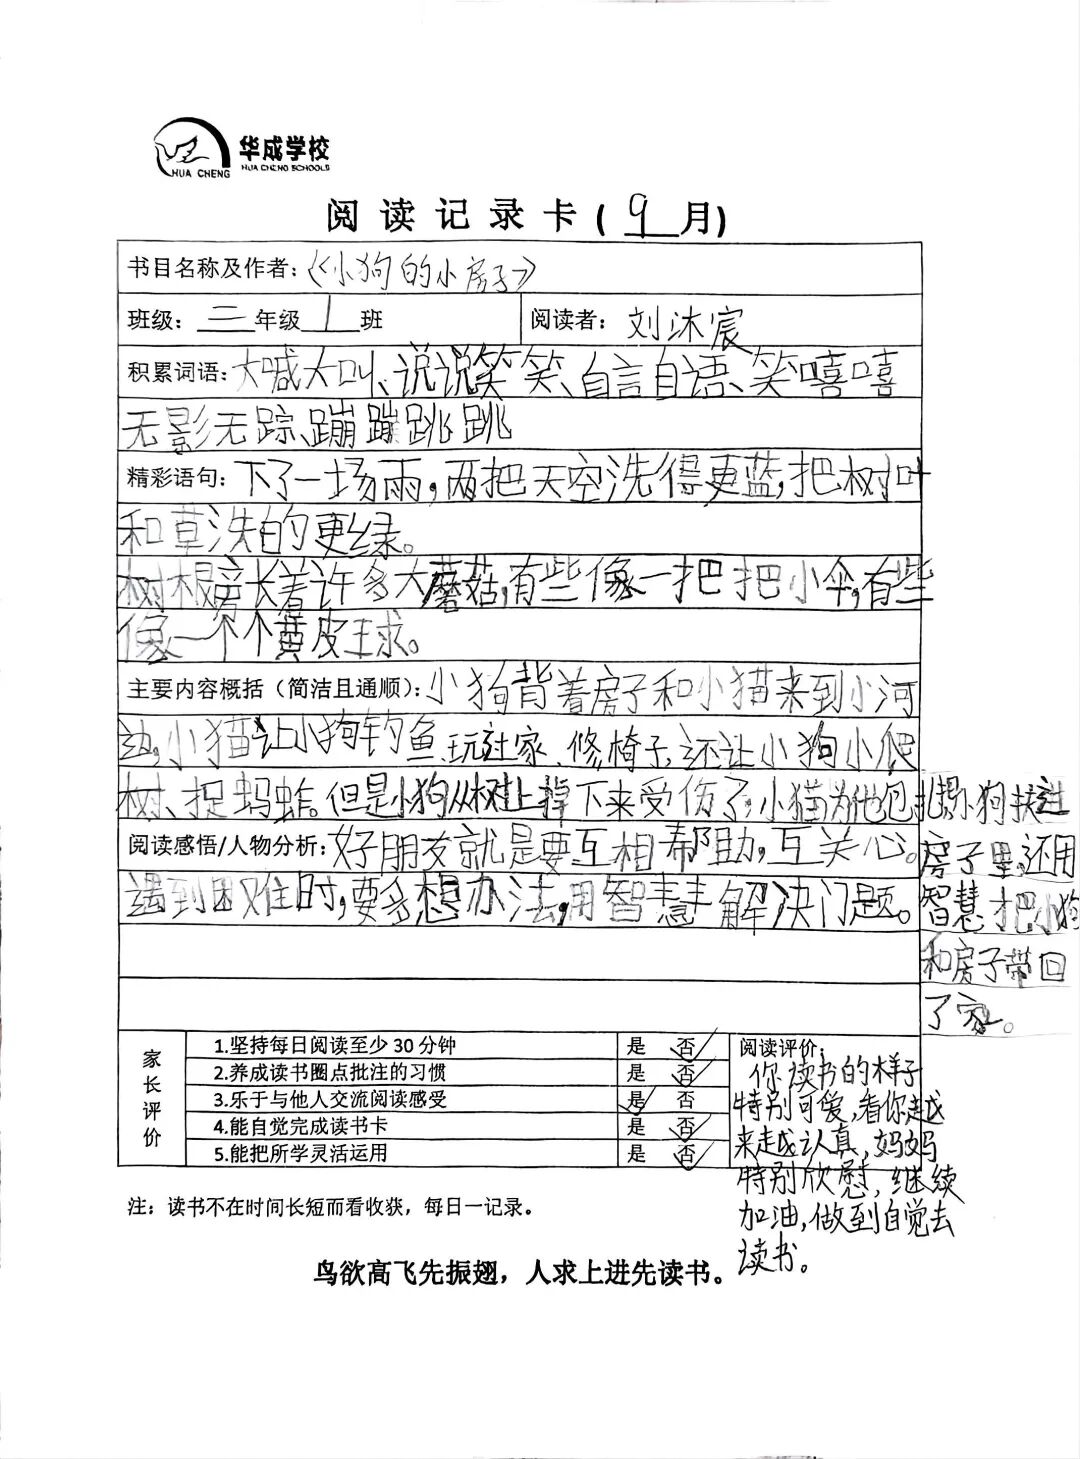 华成学校
HUA CHENG SCHOOLS
HUA CHENG
阅读记录卡(9月)
书目名称及作者：《小狗的小房子》
班级：三年级1班 阅读者：刘沐宸
积累词语：大喊大叫、说说笑笑、自言自语、笑嘻嘻
无影无踪、蹦蹦跳跳
精彩语句：下了一场雨，雨把天空洗得更蓝，把树叶
和草洗的更绿。
树根旁长着许多大蘑菇，有些像一把把小伞，有些
像一个个黄皮球。
主要内容概括（简洁且通顺）：小狗背着房子和小猫来到小河
边，小猫让小狗钓鱼、玩过家家、修椅子，还让小狗小爬
树、捉蚂蚱。但是小狗从树上掉下来受伤了，小猫为他包扎，把小狗扶进
房子里，还用
智慧把小狗
和房子带回
了家。
阅读感悟/人物分析：好朋友就是要互相帮助，互关心。
遇到困难时，要多想办法，用智慧解决问题。
家长评价
1.坚持每日阅读至少30分钟 是 否✓
2.养成读书圈点批注的习惯 是 否✓
3.乐于与他人交流阅读感受 是✓ 否
4.能自觉完成读书卡 是 否✓
5.能把所学灵活运用 是 否✓
阅读评价：
你读书的样子
特别可爱，看你越
来越认真，妈妈
特别欣慰，继续
加油，做到自觉去
读书。
注：读书不在时间长短而看收获，每日一记录。
鸟欲高飞先振翅，人求上进先读书。